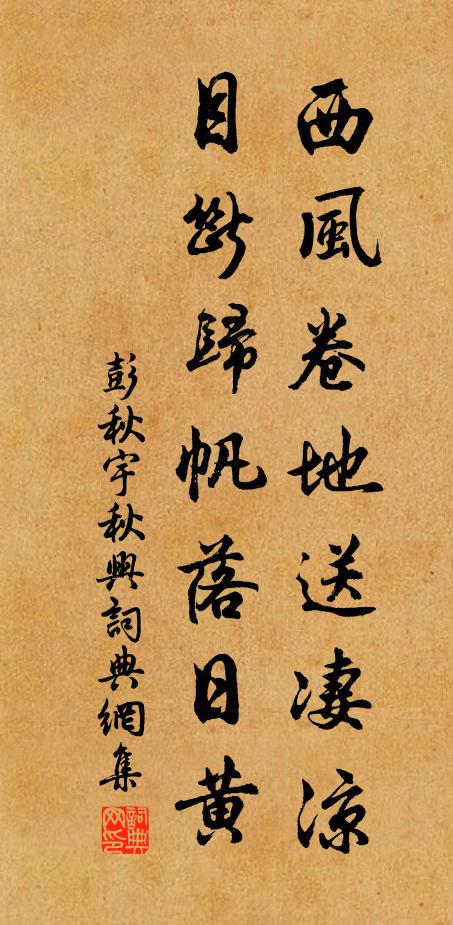 西風卷地送凄凉
目斷歸帆落日黄
彭秋宇秋興詞典網集
詞典网印